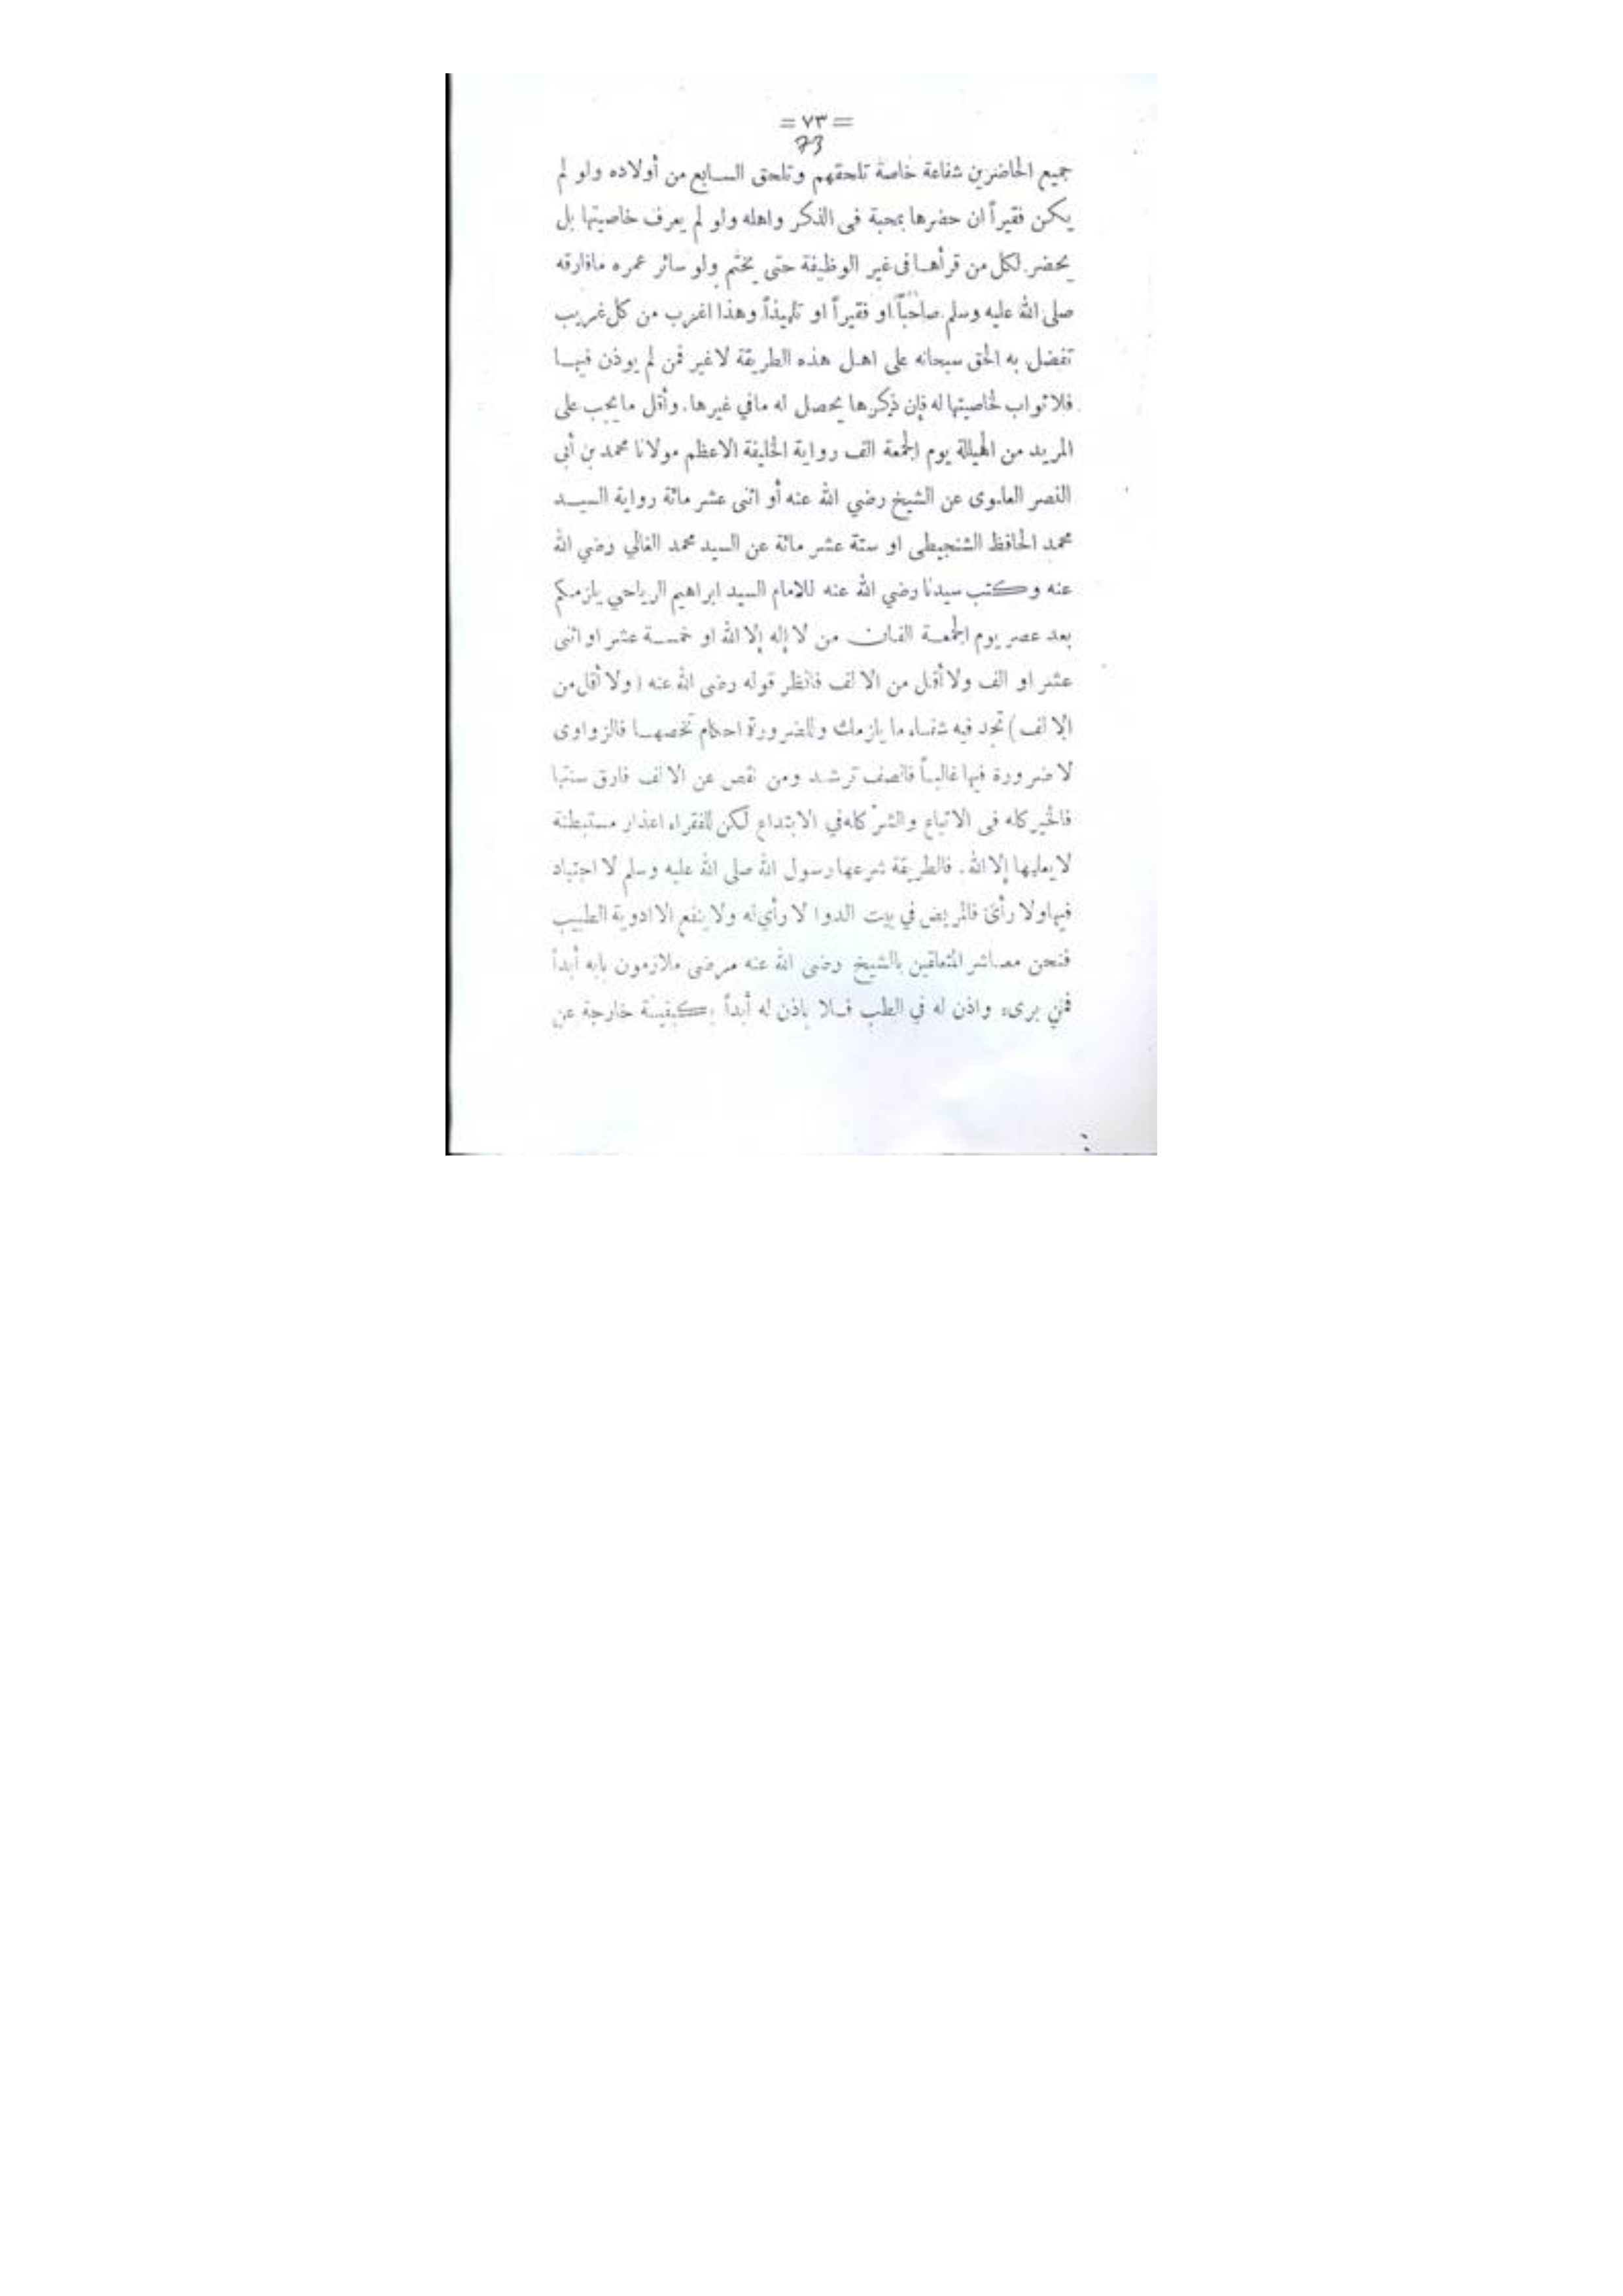 = ٧٣ =
73
جميع الحاضرين شفاعة خاصة تلحقهم وتلحق السابع من أولاده ولو لم
يكن فقيراً ان حضرها بمحبة فى الذكر واهله ولو لم يعرف خاصيتها بل
يحضر لكل من قرأها فى غير الوظيفة حتى يختم ولو سائر عمره مافارقه
صلى الله عليه وسلم صاحباً او فقيراً او تلميذاً وهذا اغرب من كل غريب
تفضل به الحق سبحانه على اهل هذه الطريقة لاغير فمن لم يوذن فيها
فلا ثواب لخاصيتها له فإن ذكرها يحصل له مافي غيرها. وأقل مايجب على
المريد من الهيللة يوم الجمعة الف رواية الخليفة الاعظم مولانا محمد بن أبى
النصر العلوى عن الشيخ رضي الله عنه أو اثنى عشر مائة رواية السيد
محمد الحافظ الشنجيطى او ستة عشر مائة عن السيد محمد الغالي رضي الله
عنه وكتب سيدنا رضي الله عنه للامام السيد ابراهيم الرياحي يلزمكم
بعد عصر يوم الجمعة الفان من لا إله إلا الله او خمسة عشر او اثنى
عشر او الف ولا أقل من الالف فانظر قوله رضى الله عنه (ولا أقل من
الالف) تجد فيه شفاء ما يلزمك وللضرورة احكام تخصها فالزواوى
لا ضرورة فيها غالباً فانصف ترشد ومن نقص عن الالف فارق سنتها
فالخير كله فى الاتباع والشرّ كله في الابتداع لكن للفقراء اعذار مستبطنة
لا يعلمها إلا الله. فالطريقة شرعها رسول الله صلى الله عليه وسلم لا اجتهاد
فيها ولا رأى فالمريض في بيت الدوا لا رأي له ولا ينفع الا ادوية الطبيب
فنحن معاشر المتعلقين بالشيخ رضى الله عنه مرضى ملازمون بابه أبداً
فمن برىء واذن له في الطب فلا ياذن له أبداً بكيفية خارجة عن